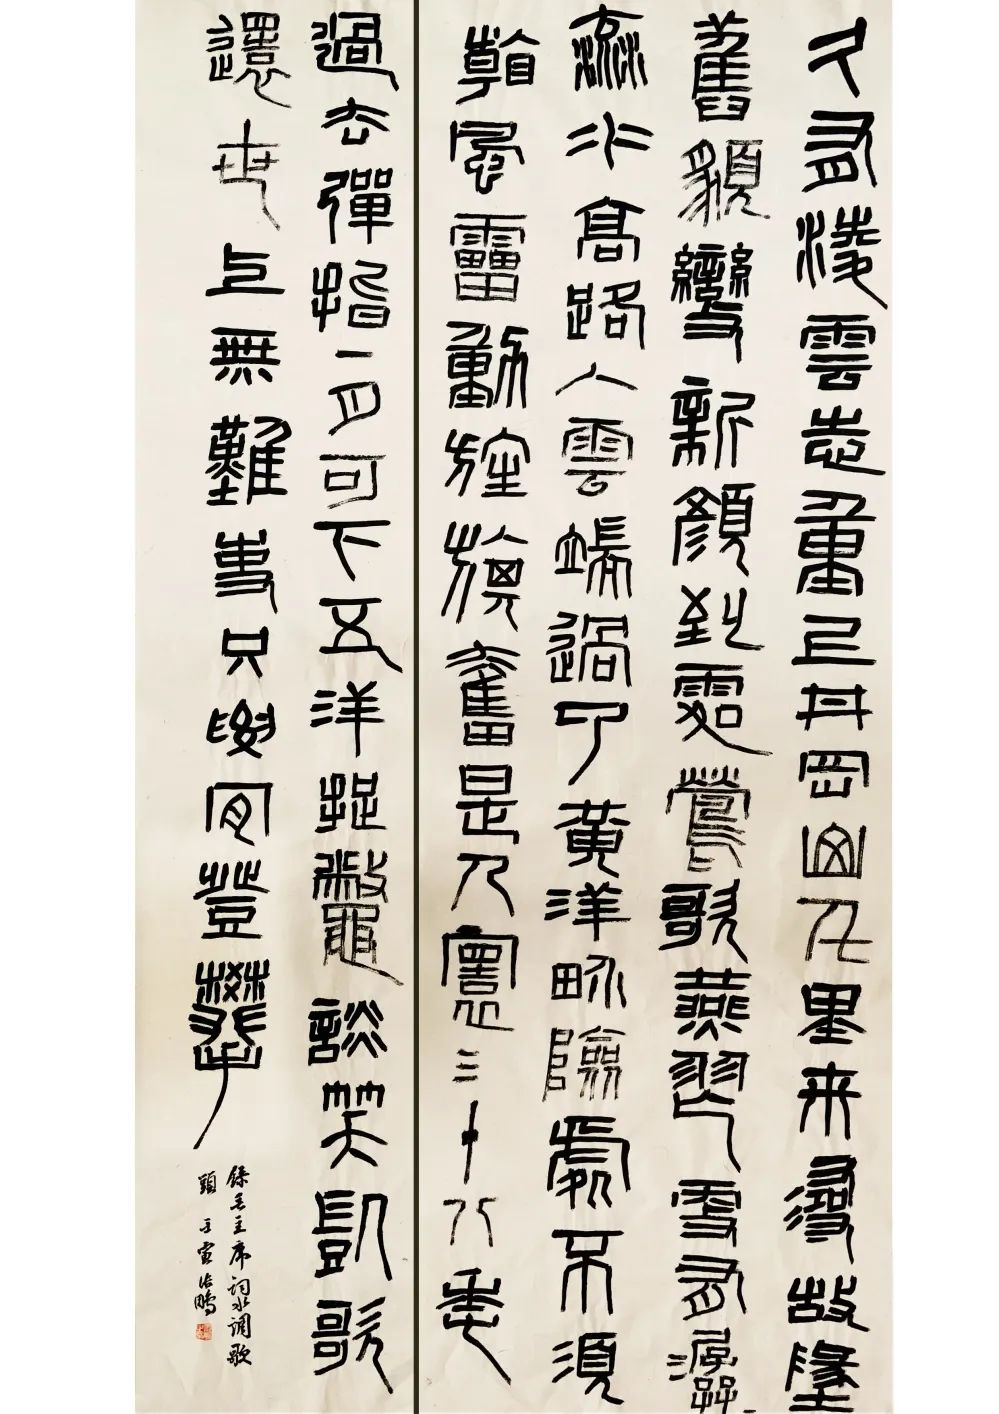 久有凌雲志重上井岡山千里来尋故地
舊貌變新顏到處鶯歌燕舞更有潺
流水高路入雲端過了黃洋界險處不須
看風雷動旌旗奮是人寰三十八年
過去彈指一月可下五洋捉鱉談笑凱歌
還世上無難事只要肯登攀
錄毛主席詞水調歌
頭 壬寅治鵬